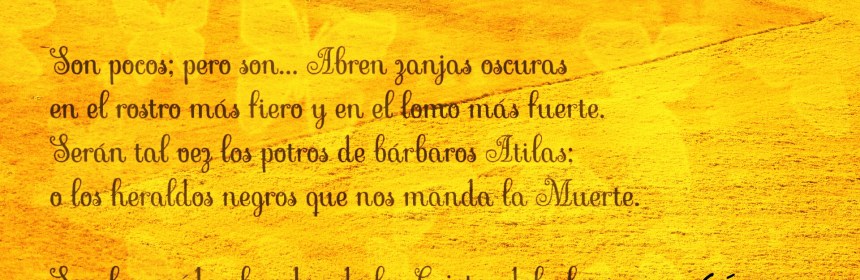 Son pocos; pero son... Abren zanjas oscuras
en el rostro más fiero y en el lomo más fuerte.
Serán tal vez los potros de bárbaros Atilas;
o los heraldos negros que nos manda la Muerte.